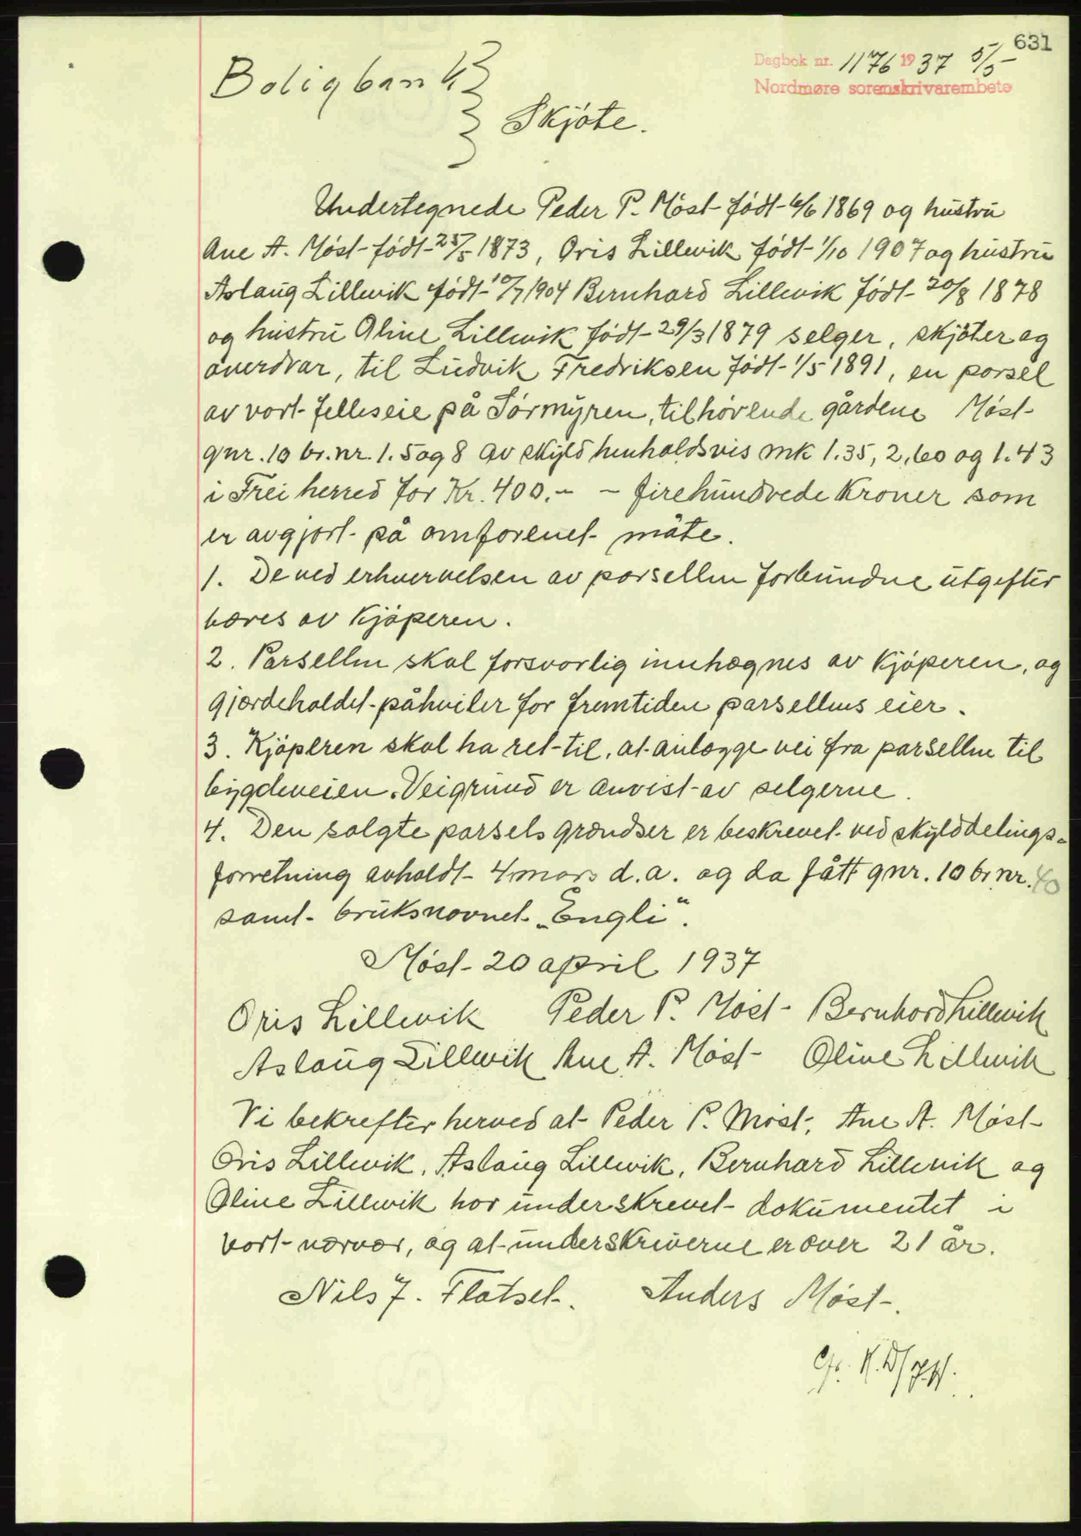 631
Dagbok nr. 1176 1937 5/5
Nordmøre sorenskrivarembete
Boligbank
Skjöte.
Undertegnede Peder P. Möst födt 6/6 1869 og hustru
Ane A. Möst födt 25/5 1873, Oris Lillevik födt 1/10 1907 og hustru
Aslaug Lillevik födt 10/7 1904 Bernhard Lillevik födt 20/8 1878
og hustru Oline Lillevik födt 29/3 1879 selger, skjöter og
overdrar, til Ludvik Fredriksen födt 1/5 1891, en parsel
av vort felleseie på Sörmyren, tilhörende gårdene Möst
gnr. 10 br.nr. 1. 5 og 8 av skyld henholdsvis mk 1.35, 2,60 og 1.43
i Frei herred for Kr. 400.- - firehundrede Kroner som
er avgjort på omforenet måte.
1. De ved erhvervelsen av parsellen forbundne utgifter
bæres av Kjöperen.
2. Parsellen skal forsvarlig innhegnes av Kjöperen, og
gjærdeholdet påhviler for fremtiden parsellens eier.
3. Kjöperen skal ha ret til, at anlægge vei fra parsellen til
bygdeveien. Veigrund er anvist av selgerne.
4. Den solgte parsels grændser er beskrevet ved skylddelings-
forretning avholdt 4 mars d.a. og da fått gnr. 10 br.nr. 40
samt bruksnavnet „Engli“.
Möst 20 april 1937
Oris Lillevik Peder P. Möst Bernhard Lillevik
Aslaug Lillevik Ane A. Möst Oline Lillevik
Vi bekrefter herved at Peder P. Möst, Ane A. Möst
Oris Lillevik, Aslaug Lillevik, Bernhard Lillevik og
Oline Lillevik har underskrevet dokumentet i
vort nærvær, og at underskriverne er over 21 år.
Nils J. Flatset. Anders Möst.